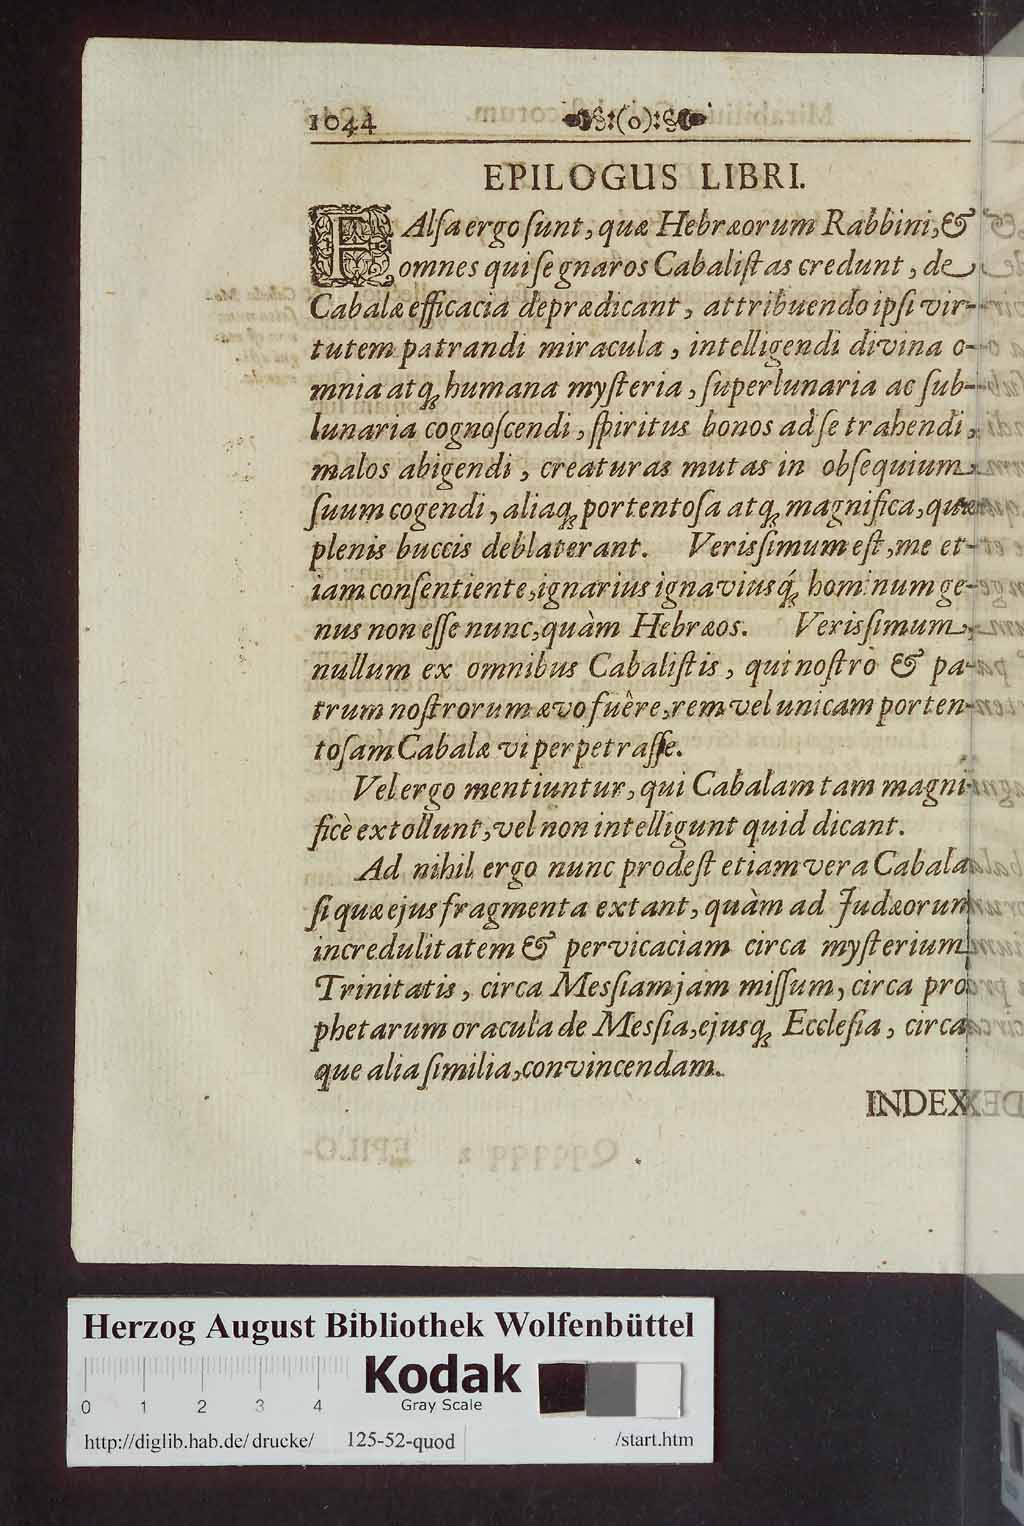 1044 (o)
EPILOGUS LIBRI.
FAlſa ergo ſunt, quæ Hebræorum Rabbini, &
omnes qui ſe gnaros Cabaliſtas credunt, de
Cabalæ efficacia deprædicant, attribuendo ipſi vir-
tutem patrandi miracula, intelligendi divina o-
mnia atq; humana myſteria, ſuperlunaria ac ſub-
lunaria cognoſcendi, ſpiritus bonos ad ſe trahendi,
malos abigendi, creaturas mutas in obſequium
ſuum cogendi, aliaq; portentoſa atq; magnifica, quæ
plenis buccis deblaterant. Verisſimum eſt, me et-
iam conſentiente, ignarius ignaviusq́; hominum ge-
nus non eſſe nunc, quàm Hebræos. Verisſimum,
nullum ex omnibus Cabaliſtis, qui noſtrò & pa-
trum noſtrorum ævo fuêre, rem vel unicam porten-
toſam Cabalæ vi perpetraſſe.
Vel ergo mentiuntur, qui Cabalam tam magni-
ficè extollunt, vel non intelligunt quid dicant.
Ad nihil ergo nunc prodeſt etiam vera Cabala
ſi quæ ejus fragmenta extant, quàm ad Judæorum
incredulitatem & pervicaciam circa myſterium
Trinitatis, circa Mesſiam jam miſſum, circa pro
phetarum oracula de Mesſia, ejusq; Eccleſia, circa
que alia ſimilia, convincendam.
INDEX
Herzog August Bibliothek Wolfenbüttel
Kodak
Gray Scale
0 1 2 3 4
http://diglib.hab.de/drucke/ 125-52-quod /start.htm